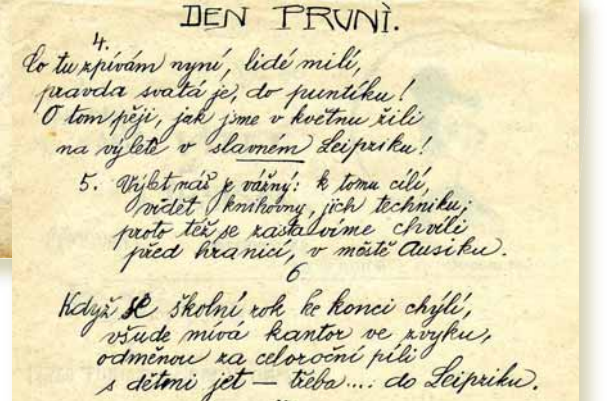 DEN PRVNÌ.
4.
Co tu zpívám nyní, lidé milí,
pravda svatá je, do puntíku!
O tom pěji, jak jsme v květnu žili
na výletě v slavném Leipziku!
5. Výlet náš je vážný: k tomu cílí,
vidět knihovny, jich techniku;
proto též se zastavíme chvíli
před hranicí, v městě Ausiku.
6
Když se školní rok ke konci chýlí,
všude mívá kantor ve zvyku,
odměnou za celoroční píli
s dětmi jet — třeba.... do Leipziku.